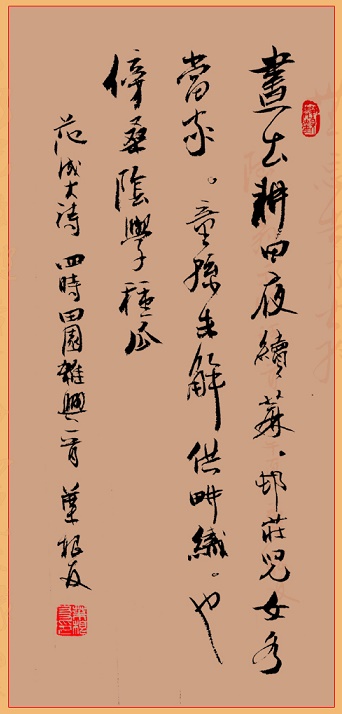 晝出耕田夜績蔴。邨莊兒女各
當家。童孫未解供畊織。也
傍桑陰學種瓜
范成大詩 四時田園雜興一首 葉根友